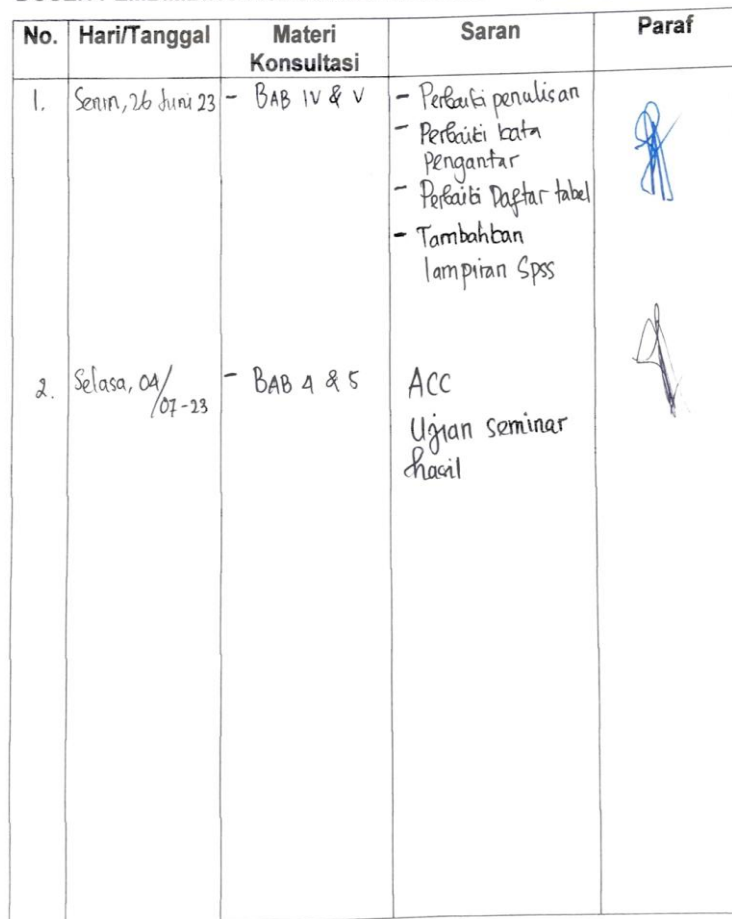 No. Hari/Tanggal Materi Konsultasi Saran Paraf
1. Senin, 26 Juni 23 - BAB IV & V - Perbaiki penulisan
- Perbaiki kata
Pengantar
- Perbaiki Daftar tabel
- Tambahkan
lampiran Spss
2. Selasa, 04/07-23 - BAB 4 & 5 ACC
Ujian seminar
hasil